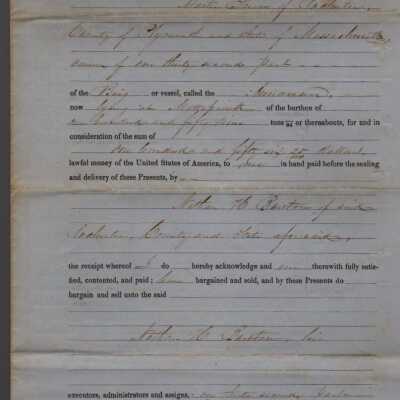 of
County of Plymouth and State of Massachusetts
owner of one thirty second part
of the Brig or vessel, called the
now lying at Mattapoisett of the burthen of
one hundred and fifty nine tons or thereabouts, for and in
consideration of the sum of
one hundred and fifty six 25 dollars
lawful money of the United States of America, to me in hand paid before the sealing
and delivery of these Presents, by
H Barstow of said
County and State aforesaid,
the receipt whereof I do hereby acknowledge and am therewith fully satis-
fied, contented, and paid; have bargained and sold, and by these Presents do
bargain and sell unto the said
H Barstow, his
executors, administrators and assigns, one thirty second